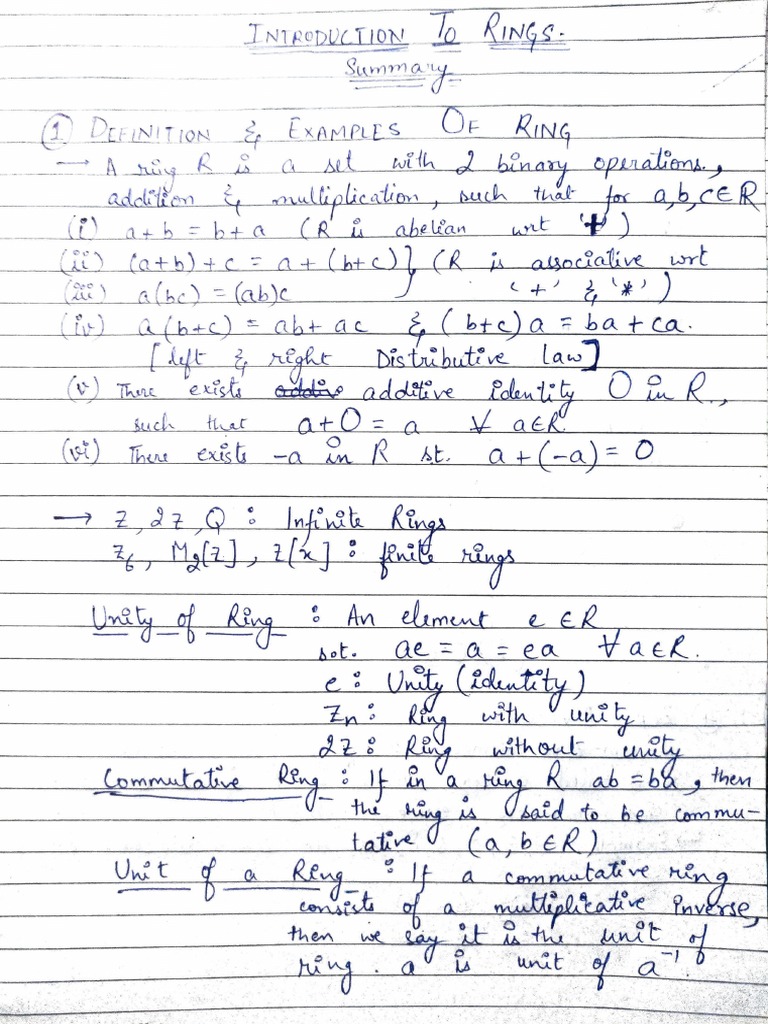 INTRODUCTION TO RINGS.
Summary
① DEFINITION & EXAMPLES OF RING
→ A ring R is a set with 2 binary operations.,
addition & multiplication, such that for a,b,c∈R
(i) a+b = b+a (R is abelian wrt '+')
(ii) (a+b)+c = a+(b+c) } (R is associative wrt
(iii) a(bc) = (ab)c '+' & '*')
(iv) a(b+c) = ab+ac & (b+c)a = ba+ca.
[left & right Distributive law]
(v) There exists additive identity 0 in R.,
such that a+0 = a ∀ a∈R.
(vi) There exists -a in R st. a+(-a) = 0
→ Z, 2Z, Q : Infinite Rings
Z₆, M₂[Z], Z[x] : finite rings
Unity of Ring : An element e ∈R
s.t. ae = a = ea ∀ a∈R.
e : Unity (identity)
Zn : Ring with unity
2Z : Ring without unity
Commutative Ring : If in a ring R ab=ba, then
the ring is said to be commu-
tative (a, b ∈R)
Unit of a Ring : If a commutative ring
consists of a multiplicative inverse,
then we say it is the unit of
ring. a is unit of a⁻¹.